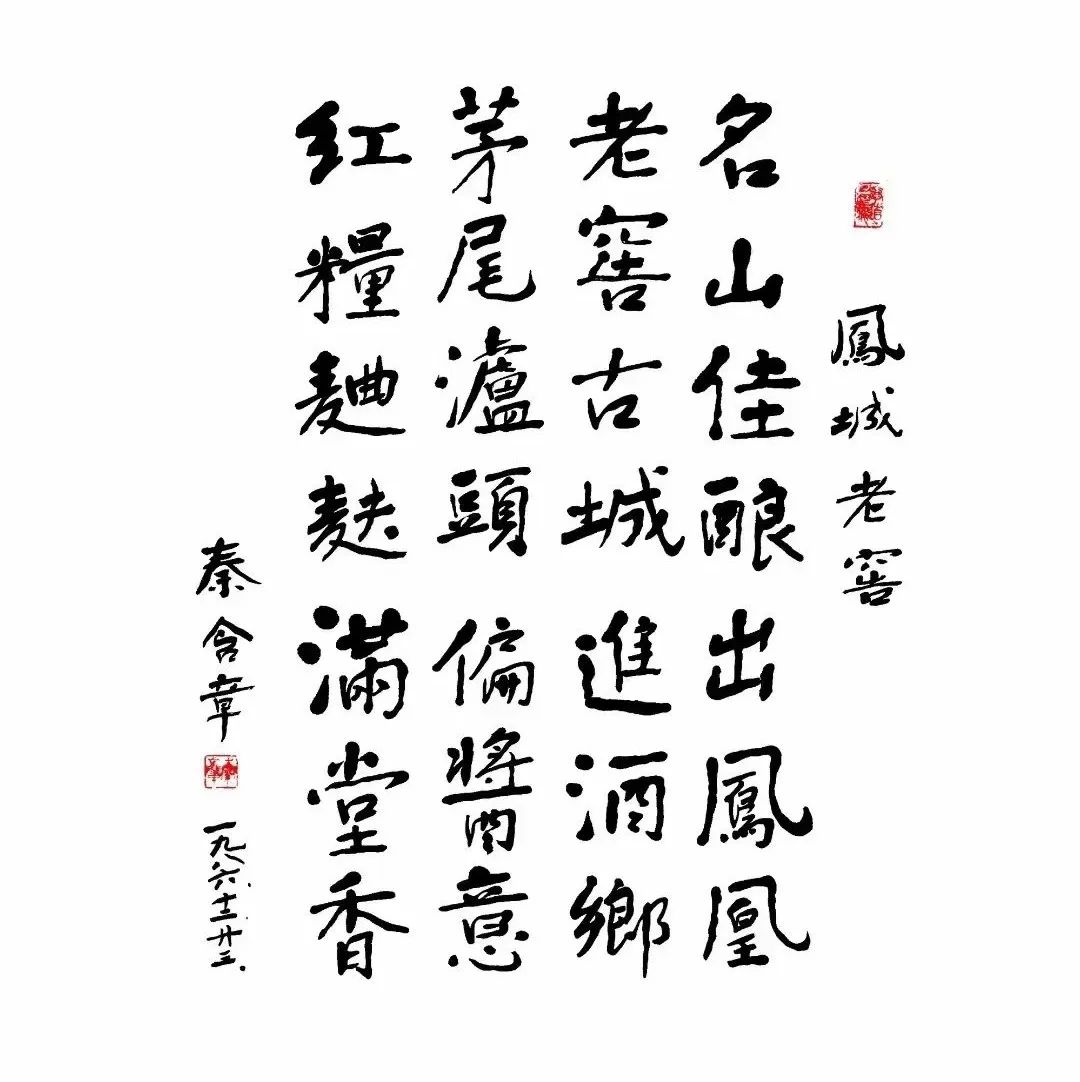 鳳城老窖
名山佳酿出鳳凰
老窖古城進酒鄉
茅尾瀘頭偏醬意
红糧麯麸滿堂香
秦含章
一九八六.十二.廿三.